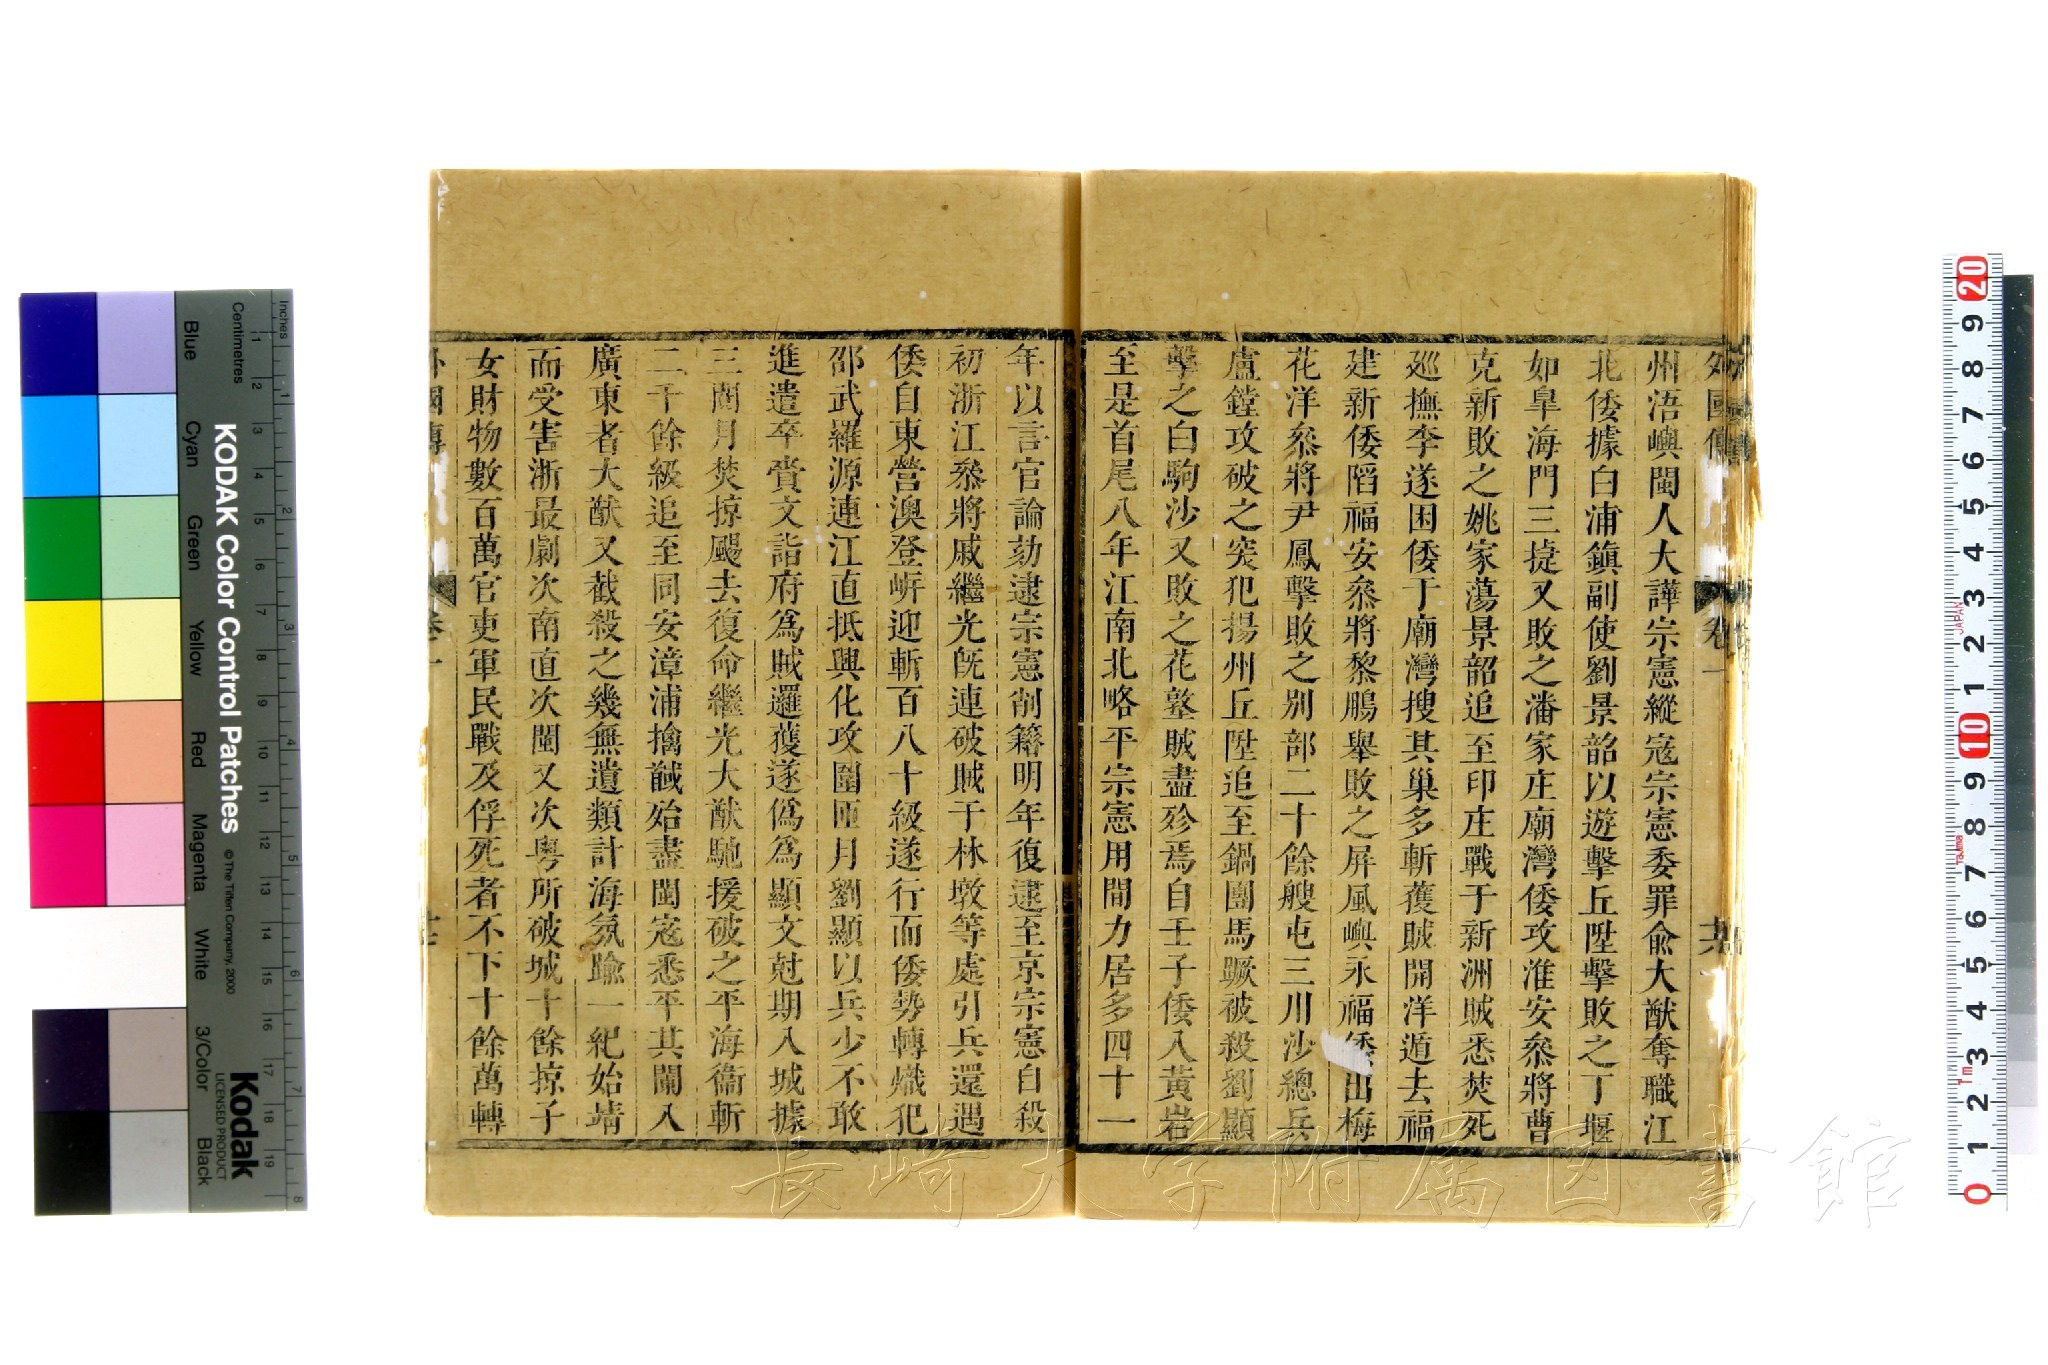 外國傳
卷一
州浯嶼閩人大譁宗憲縱寇宗憲委罪俞大猷奪職江
北倭據白浦鎭副使劉景韶以遊擊丘陞擊敗之丁堰
如皐海門三㨗又敗之潘家庄廟灣倭攻淮安叅將曹
克新敗之姚家蕩景韶追至印庄戰于新洲賊悉焚死
廵撫李遂困倭于廟灣搜其巢多斬獲賊開洋遁去福
建新倭䧟福安叅將黎鵬舉敗之屏風嶼永福倭出梅
花洋叅將尹鳳擊敗之别部二十餘艘屯三川沙總兵
盧鏜攻破之突犯揚州丘陞追至鍋團馬蹶被殺劉顯
擊之白駒沙又敗之花墪賊盡殄焉自壬子倭入黃岩
至是首尾八年江南北略平宗憲用間力居多四十一
年以言官論劾逮宗憲削籍明年復逮至京宗憲自殺
初浙江叅將戚繼光旣連破賊于林墩等處引兵還遇
倭自東營澳登岍迎斬百八十級遂行而倭势轉熾犯
邵武羅源連江直抵興化攻圍匝月劉顯以兵少不敢
進遣卒賫文詣府爲賊邏獲遂僞爲顯文尅期入城據
三閱月焚掠颺去復命繼光大猷馳援破之平海衞斬
二千餘級追至同安漳浦擒馘殆盡閩宼悉平其闌入
廣東者大猷又截殺之幾無遺類計海氛踰一紀始靖
而受害浙最劇次南直次閩又次粤所破城十餘掠子
女財物數百萬官吏軍民戰及俘死者不下十餘萬轉
外國傳
卷一
長崎大学附属図書館
KODAK Color Control Patches
© The Tiffen Company, 2000
Kodak
LICENSED PRODUCT
Inches
Centimetres
Blue
Cyan
Green
Yellow
Red
Magenta
White
3/Color
Black
JAPAN
Tajima
1m